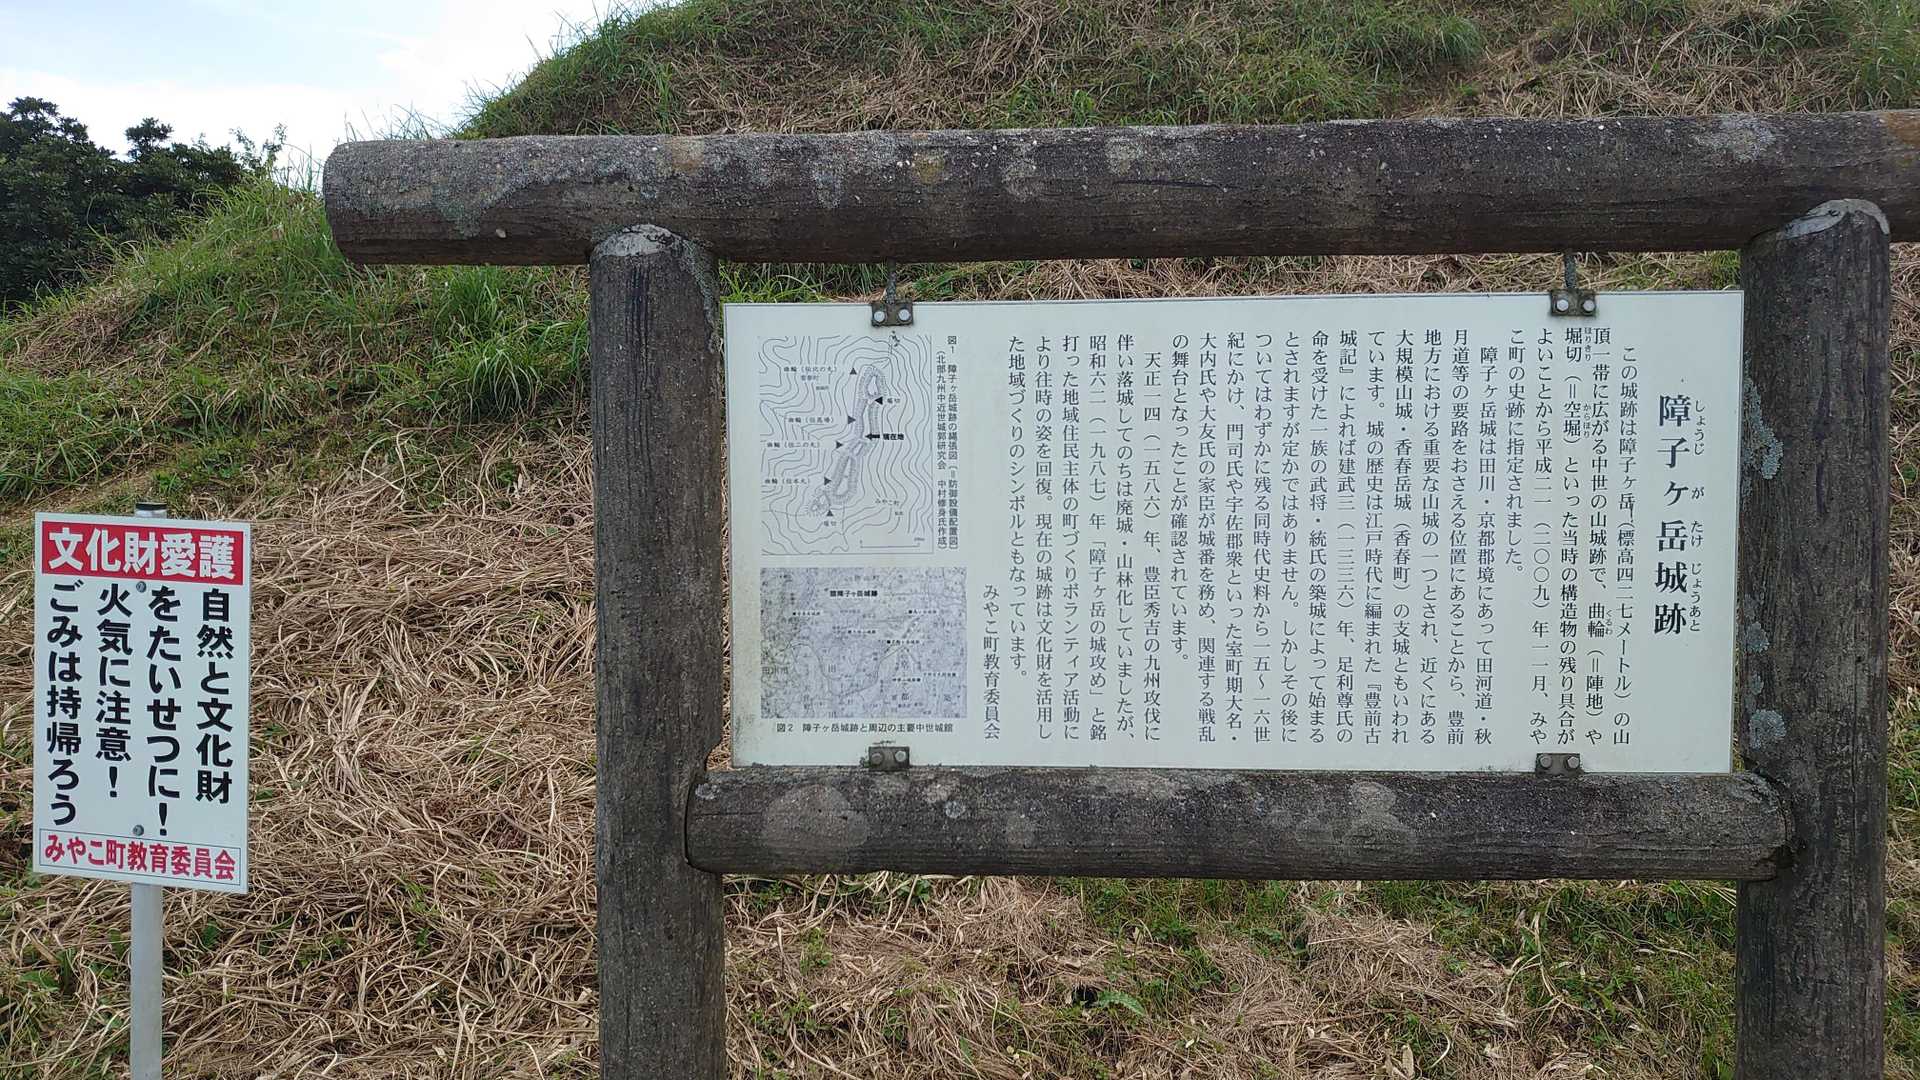 障子ヶ岳城跡
しょうじ が たけ じょうあと
この城跡は障子ヶ岳(標高四二七メートル)の山
頂一帯に広がる中世の山城跡で、曲輪(=陣地)や
くるわ
堀切(=空堀)といった当時の構造物の残り具合が
ほりきり からぼり
よいことから平成二一(二〇〇九)年一一月、みや
こ町の史跡に指定されました。
障子ヶ岳城は田川・京都郡境にあって田河道・秋
月道等の要路をおさえる位置にあることから、豊前
地方における重要な山城の一つとされ、近くにある
大規模山城・香春岳城(香春町)の支城ともいわれ
ています。城の歴史は江戸時代に編まれた『豊前古
城記』によれば建武三(一三三六)年、足利尊氏の
命を受けた一族の武将・統氏の築城によって始まる
とされますが定かではありません。しかしその後に
ついてはわずかに残る同時代史料から一五〜一六世
紀にかけ、門司氏や宇佐郡衆といった室町期大名・
大内氏や大友氏の家臣が城番を務め、関連する戦乱
の舞台となったことが確認されています。
天正一四(一五八六)年、豊臣秀吉の九州攻伐に
伴い落城してのちは廃城・山林化していましたが、
昭和六二(一九八七)年「障子ヶ岳の城攻め」と銘
打った地域住民主体の町づくりボランティア活動に
より往時の姿を回復。現在の城跡は文化財を活用し
た地域づくりのシンボルともなっています。
みやこ町教育委員会
図1 障子ヶ岳城跡の縄張図(=防御設備配置図)
(北部九州中近世城郭研究会 中村修身氏作成)
堀切
現在地
曲輪(伝馬場)
曲輪(伝二の丸)
曲輪(伝本丸)
みやこ町
堀切
障子ヶ岳城跡
図2 障子ヶ岳城跡と周辺の主要中世城館
文化財愛護
自然と文化財
をたいせつに!
火気に注意!
ごみは持帰ろう
みやこ町教育委員会